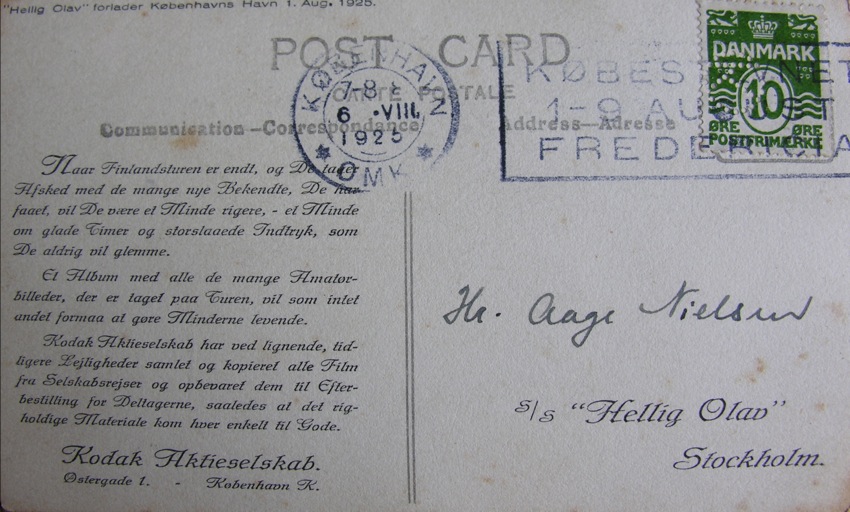 "Hellig Olav" forlader Københavns Havn 1. Aug. 1925.
POST CARD
CARTE POSTALE
Communication—Correspondance
Address—Adresse
KØBENHAVN
7-8
6 .VIII.
1925
* OMK *
KØBEST
1-9 AUGUST
FREDERICIA
DANMARK
10
ØRE ØRE
POSTFRIMÆRKE
Naar Finlandsturen er endt, og De tager
Afsked med de mange nye Bekendte, De har
faaet, vil De være et Minde rigere, - et Minde
om glade Timer og storslaaede Indtryk, som
De aldrig vil glemme.
Et Album med alle de mange Amatør-
billeder, der er taget paa Turen, vil som intet
andet formaa at gøre Minderne levende.
Kodak Aktieselskab har ved lignende, tid-
ligere Lejligheder samlet og kopieret alle Film
fra Selskabsrejser og opbevaret dem til Efter-
bestilling for Deltagerne, saaledes at det rig-
holdige Materiale kom hver enkelt til Gode.
Kodak Aktieselskab.
Østergade 1. - København K.
Hr. Aage Nielsen
S/S "Hellig Olav"
Stockholm.